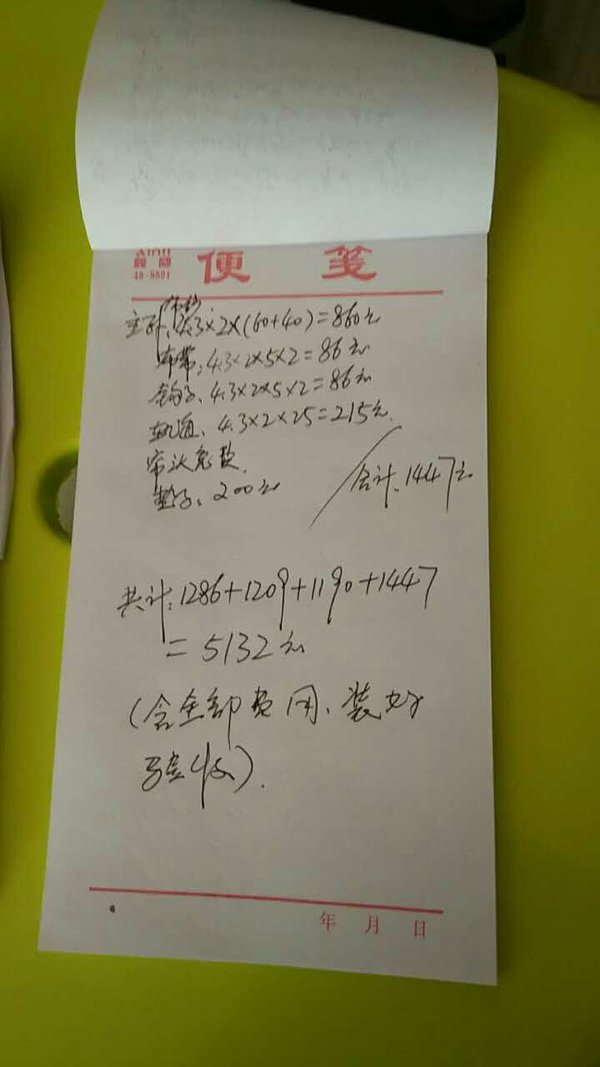 48-8881
便 笺
布纱
主卧、4.3×2×(60+40)=860元
布带、4.3×2×5×2=86元
钩子、4.3×2×5×2=86元
轨道、4.3×2×25=215元
窗沙免费
垫子、200元
合计、1447元
共计:1286+1209+1190+1447
=5132元
(含全部费用、装好
验收).
年 月 日